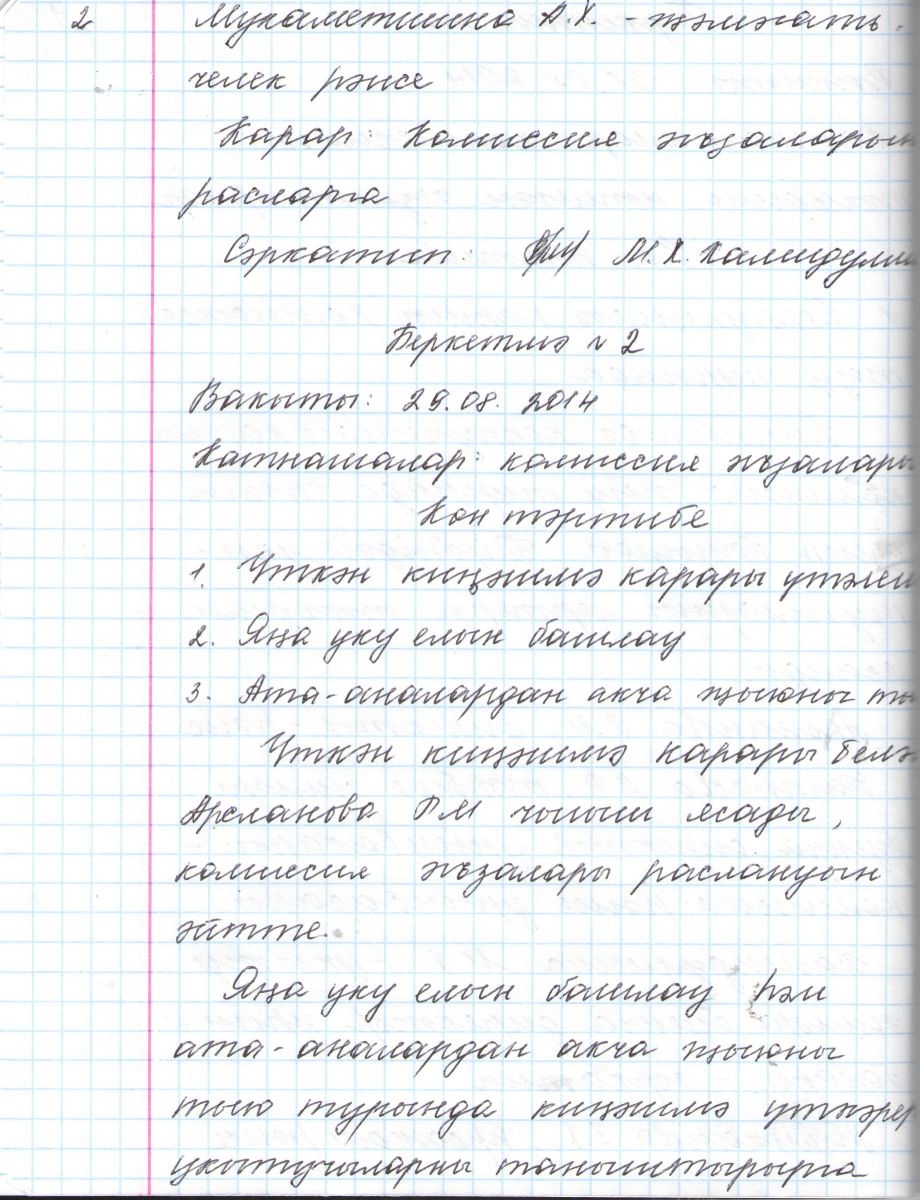 2 Мухаметшина А.Х. - җәмәгать-
челек рәисе
Карар: Комиссия әгъзаларын
расларга
Сәркатип: М.Х. Хамидулли
Беркетмә № 2
Вакыты: 29.08. 2014
Катнашалар: комиссия әгъзалары
Көн тәртибе
1. Үткән киңәшмә карары үтәлеш
2. Яңа уку елын башлау
3. Ата-аналардан акча җыюны ты
Үткән киңәшмә карары белә
Арсланова Р М чыгыш ясады,
комиссия әгъзалары раслануын
әйтте.
Яңа уку елын башлау һәм
ата-аналардан акча җыюны
тыю турында киңәшмә үткәрер
укытучыларны таныштырырга